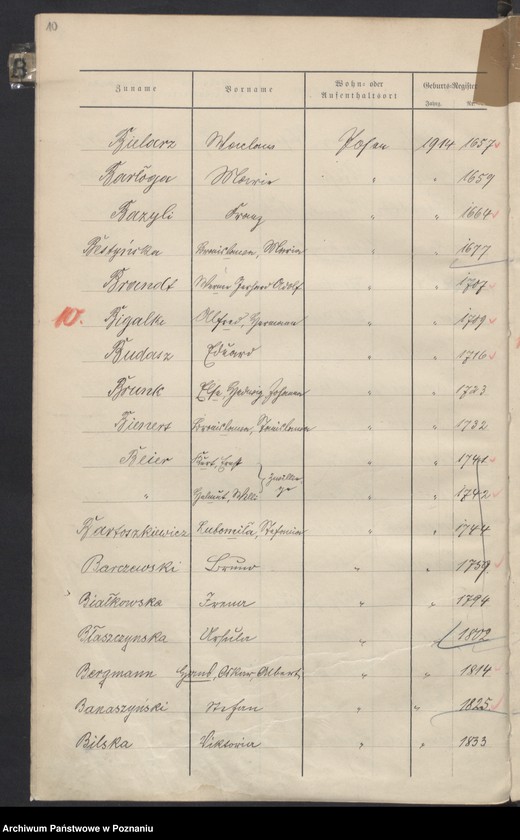 10
B
Zuname Vorname Wohn- oder Aufenthaltsort Geburts-Register
Jahrg. Nr.
Bielarz Waclaw Posen 1914 1657
Bartoga Marie " " 1659
Bazyli Franz " " 1664
Bronislawa, Maria " " 1677
Brandt Werner Gerhard Adolf " " 1707
10. Bigalke Alfred, Hermann " " 1709
Budasz Eduard " " 1716
Brunk Else, Hedwig Johanna " " 1723
Bienert Bronislawa, Stanislawa " " 1732
Beier Kurt, Ernst " " 1741
" Helmut, Willi Zwillinge " " 1742
Bartoszkiewicz Lubomiła, Stefania " " 1744
Barczewski Bruno " " 1759
Białkowska Irena " " 1794
Błaszczynska Ursula " " 1802
Bergmann Horst, Oskar, Albert " " 1814
Banaszyński Stefan " " 1825
Bilska Viktoria " " 1833
Archiwum Państwowe w Poznaniu